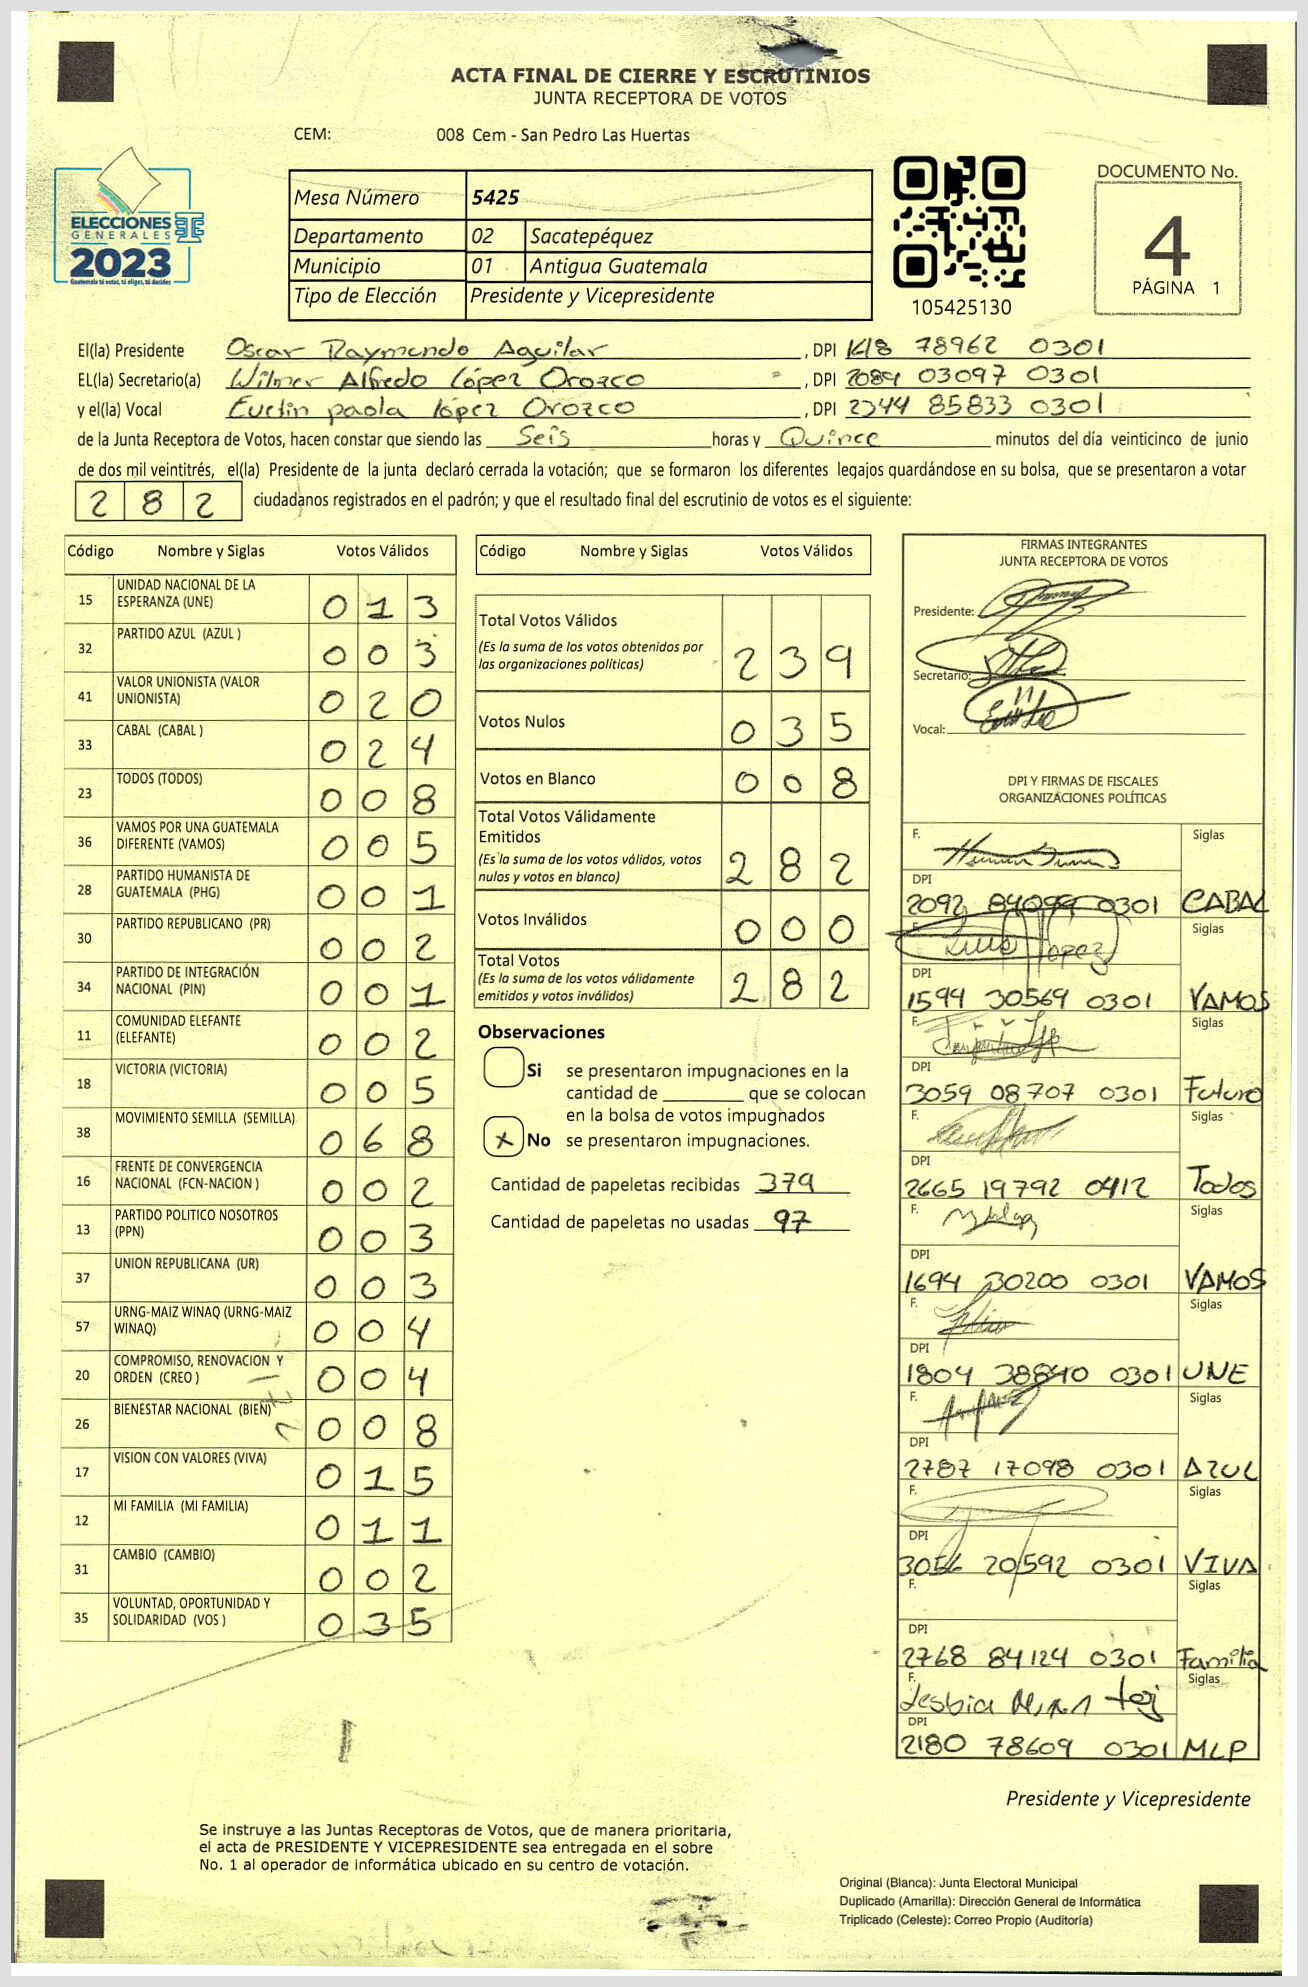 ACTA FINAL DE CIERRE Y ESCRUTINIOS
JUNTA RECEPTORA DE VOTOS
CEM: 008 Cem - San Pedro Las Huertas
ELECCIONES
GENERALES
2023
Guatemala tú votas, tú eliges, tú decides
Mesa Número 5425
Departamento 02 Sacatepéquez
Municipio 01 Antigua Guatemala
Tipo de Elección Presidente y Vicepresidente
105425130
DOCUMENTO No.
4
PÁGINA 1
El(la) Presidente Oscar Raymundo Aguilar, DPI 1618 78962 0301
EL(la) Secretario(a) Wilmer Alfredo López Orozco, DPI 2089 03097 0301
y el(la) Vocal Evelin paola lópez Orozco, DPI 2344 85833 0301
de la Junta Receptora de Votos, hacen constar que siendo las Seis horas y Quince minutos del día veinticinco de junio
de dos mil veintitrés, el(la) Presidente de la junta declaró cerrada la votación; que se formaron los diferentes legajos quardándose en su bolsa, que se presentaron a votar
282 ciudadanos registrados en el padrón; y que el resultado final del escrutinio de votos es el siguiente:
Código Nombre y Siglas Votos Válidos
15 UNIDAD NACIONAL DE LA ESPERANZA (UNE) 013
32 PARTIDO AZUL (AZUL ) 003
41 VALOR UNIONISTA (VALOR UNIONISTA) 020
33 CABAL (CABAL ) 024
23 TODOS (TODOS) 008
36 VAMOS POR UNA GUATEMALA DIFERENTE (VAMOS) 005
28 PARTIDO HUMANISTA DE GUATEMALA (PHG) 001
30 PARTIDO REPUBLICANO (PR) 002
34 PARTIDO DE INTEGRACIÓN NACIONAL (PIN) 001
11 COMUNIDAD ELEFANTE (ELEFANTE) 002
18 VICTORIA (VICTORIA) 005
38 MOVIMIENTO SEMILLA (SEMILLA) 068
16 FRENTE DE CONVERGENCIA NACIONAL (FCN-NACION ) 002
13 PARTIDO POLITICO NOSOTROS (PPN) 003
37 UNION REPUBLICANA (UR) 003
57 URNG-MAIZ WINAQ (URNG-MAIZ WINAQ) 004
20 COMPROMISO, RENOVACION Y ORDEN (CREO ) 004
26 BIENESTAR NACIONAL (BIEN) 008
17 VISION CON VALORES (VIVA) 015
12 MI FAMILIA (MI FAMILIA) 011
31 CAMBIO (CAMBIO) 002
35 VOLUNTAD, OPORTUNIDAD Y SOLIDARIDAD (VOS ) 035
Código Nombre y Siglas Votos Válidos
Total Votos Válidos 239
(Es la suma de los votos obtenidos por
las organizaciones políticas)
Votos Nulos 035
Votos en Blanco 008
Total Votos Válidamente
Emitidos 282
(Es la suma de los votos válidos, votos
nulos y votos en blanco)
Votos Inválidos 000
Total Votos 282
(Es la suma de los votos válidamente
emitidos y votos inválidos)
Observaciones
Si se presentaron impugnaciones en la
cantidad de ________ que se colocan
en la bolsa de votos impugnados
x No se presentaron impugnaciones.
Cantidad de papeletas recibidas 379
Cantidad de papeletas no usadas 97
FIRMAS INTEGRANTES
JUNTA RECEPTORA DE VOTOS
Presidente:
Secretario:
Vocal:
DPI Y FIRMAS DE FISCALES
ORGANIZACIONES POLÍTICAS
F. Siglas
DPI
2092 84099 0301 CABAL
F. Siglas
DPI
1594 30569 0301 VAMOS
F. Siglas
DPI
3059 08707 0301 Futuro
F. Siglas
DPI
2665 19792 0412 Todos
F. Siglas
DPI
1694 30200 0301 VAMOS
F. Siglas
DPI
1804 38840 0301 UNE
F. Siglas
DPI
2787 17098 0301 AZUL
F. Siglas
DPI
3056 20592 0301 VIVA
F. Siglas
DPI
2768 84124 0301 Familia
F. Lesbia Siglas
DPI
2180 78609 0301 MLP
Presidente y Vicepresidente
Se instruye a las Juntas Receptoras de Votos, que de manera prioritaria,
el acta de PRESIDENTE Y VICEPRESIDENTE sea entregada en el sobre
No. 1 al operador de informática ubicado en su centro de votación.
Original (Blanca): Junta Electoral Municipal
Duplicado (Amarilla): Dirección General de Informática
Triplicado (Celeste): Correo Propio (Auditoría)